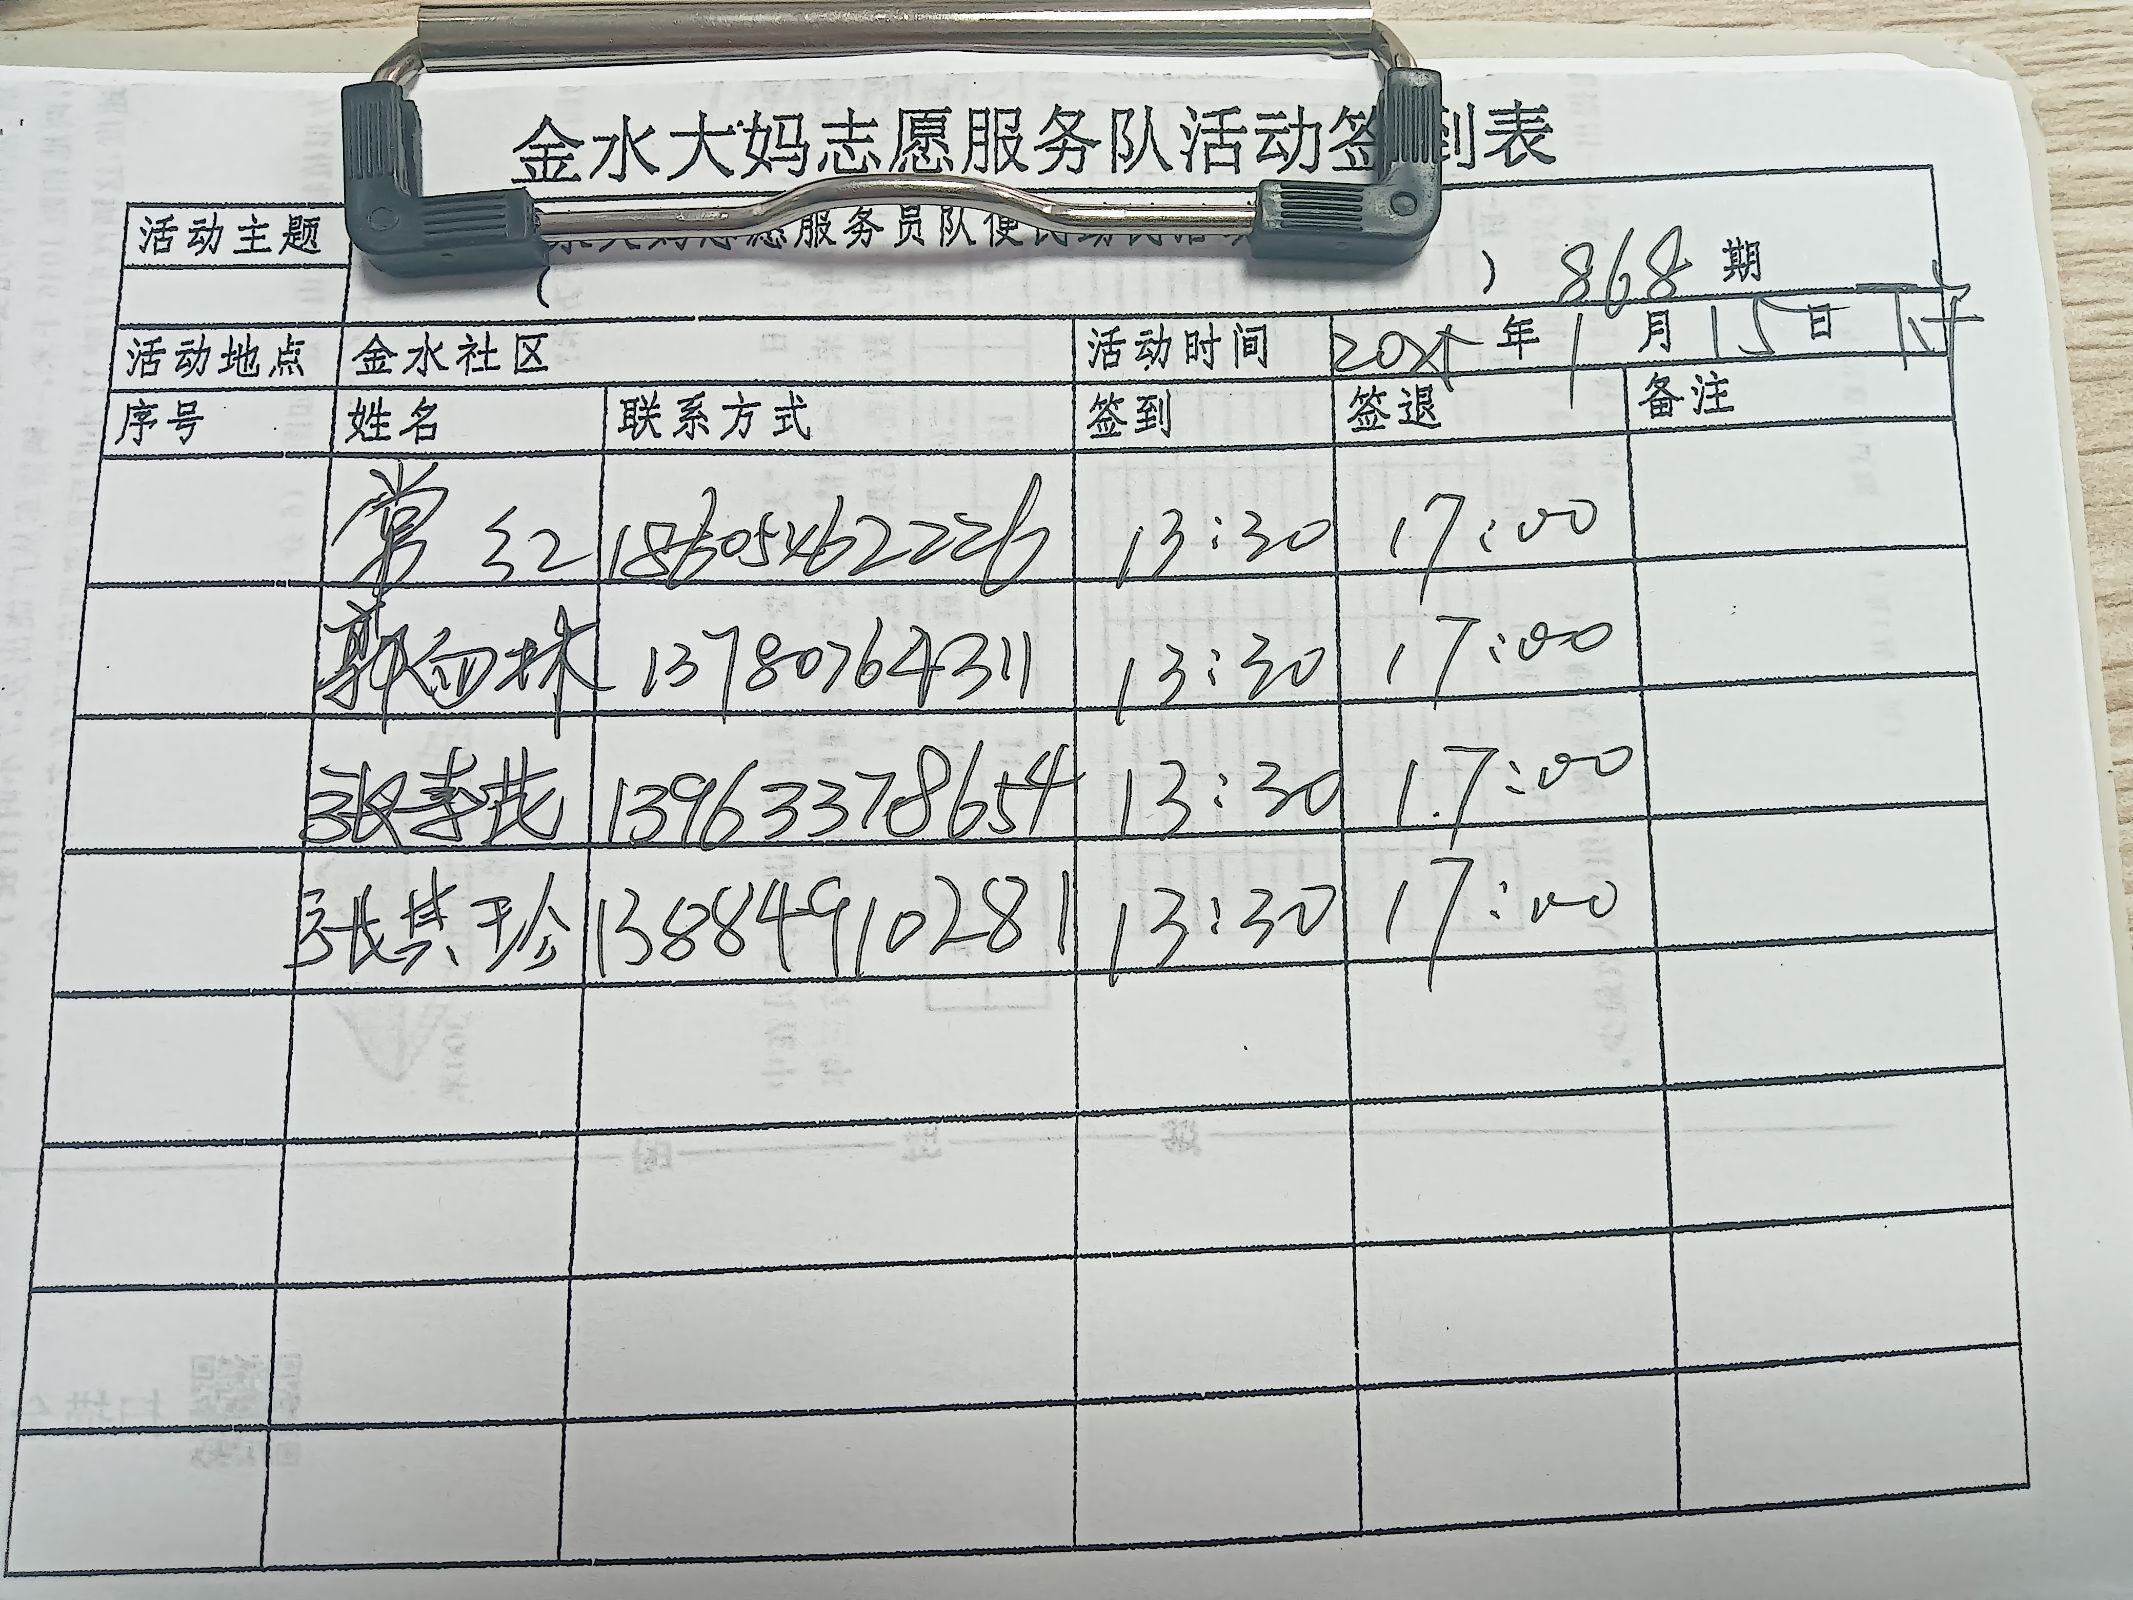 金水大妈志愿服务队活动签到表
活动主题 大妈志愿服务员队便民助民活动
( ) 868 期
活动地点 金水社区 活动时间 年 1 月 15 日 下午
序号 姓名 联系方式 签到 签退 备注
常红 18605462226 13:30 17:00
郭向林 13780764311 13:30 17:00
张 13963378654 13:30 17:00
张其珍 13884910281 13:30 17:00